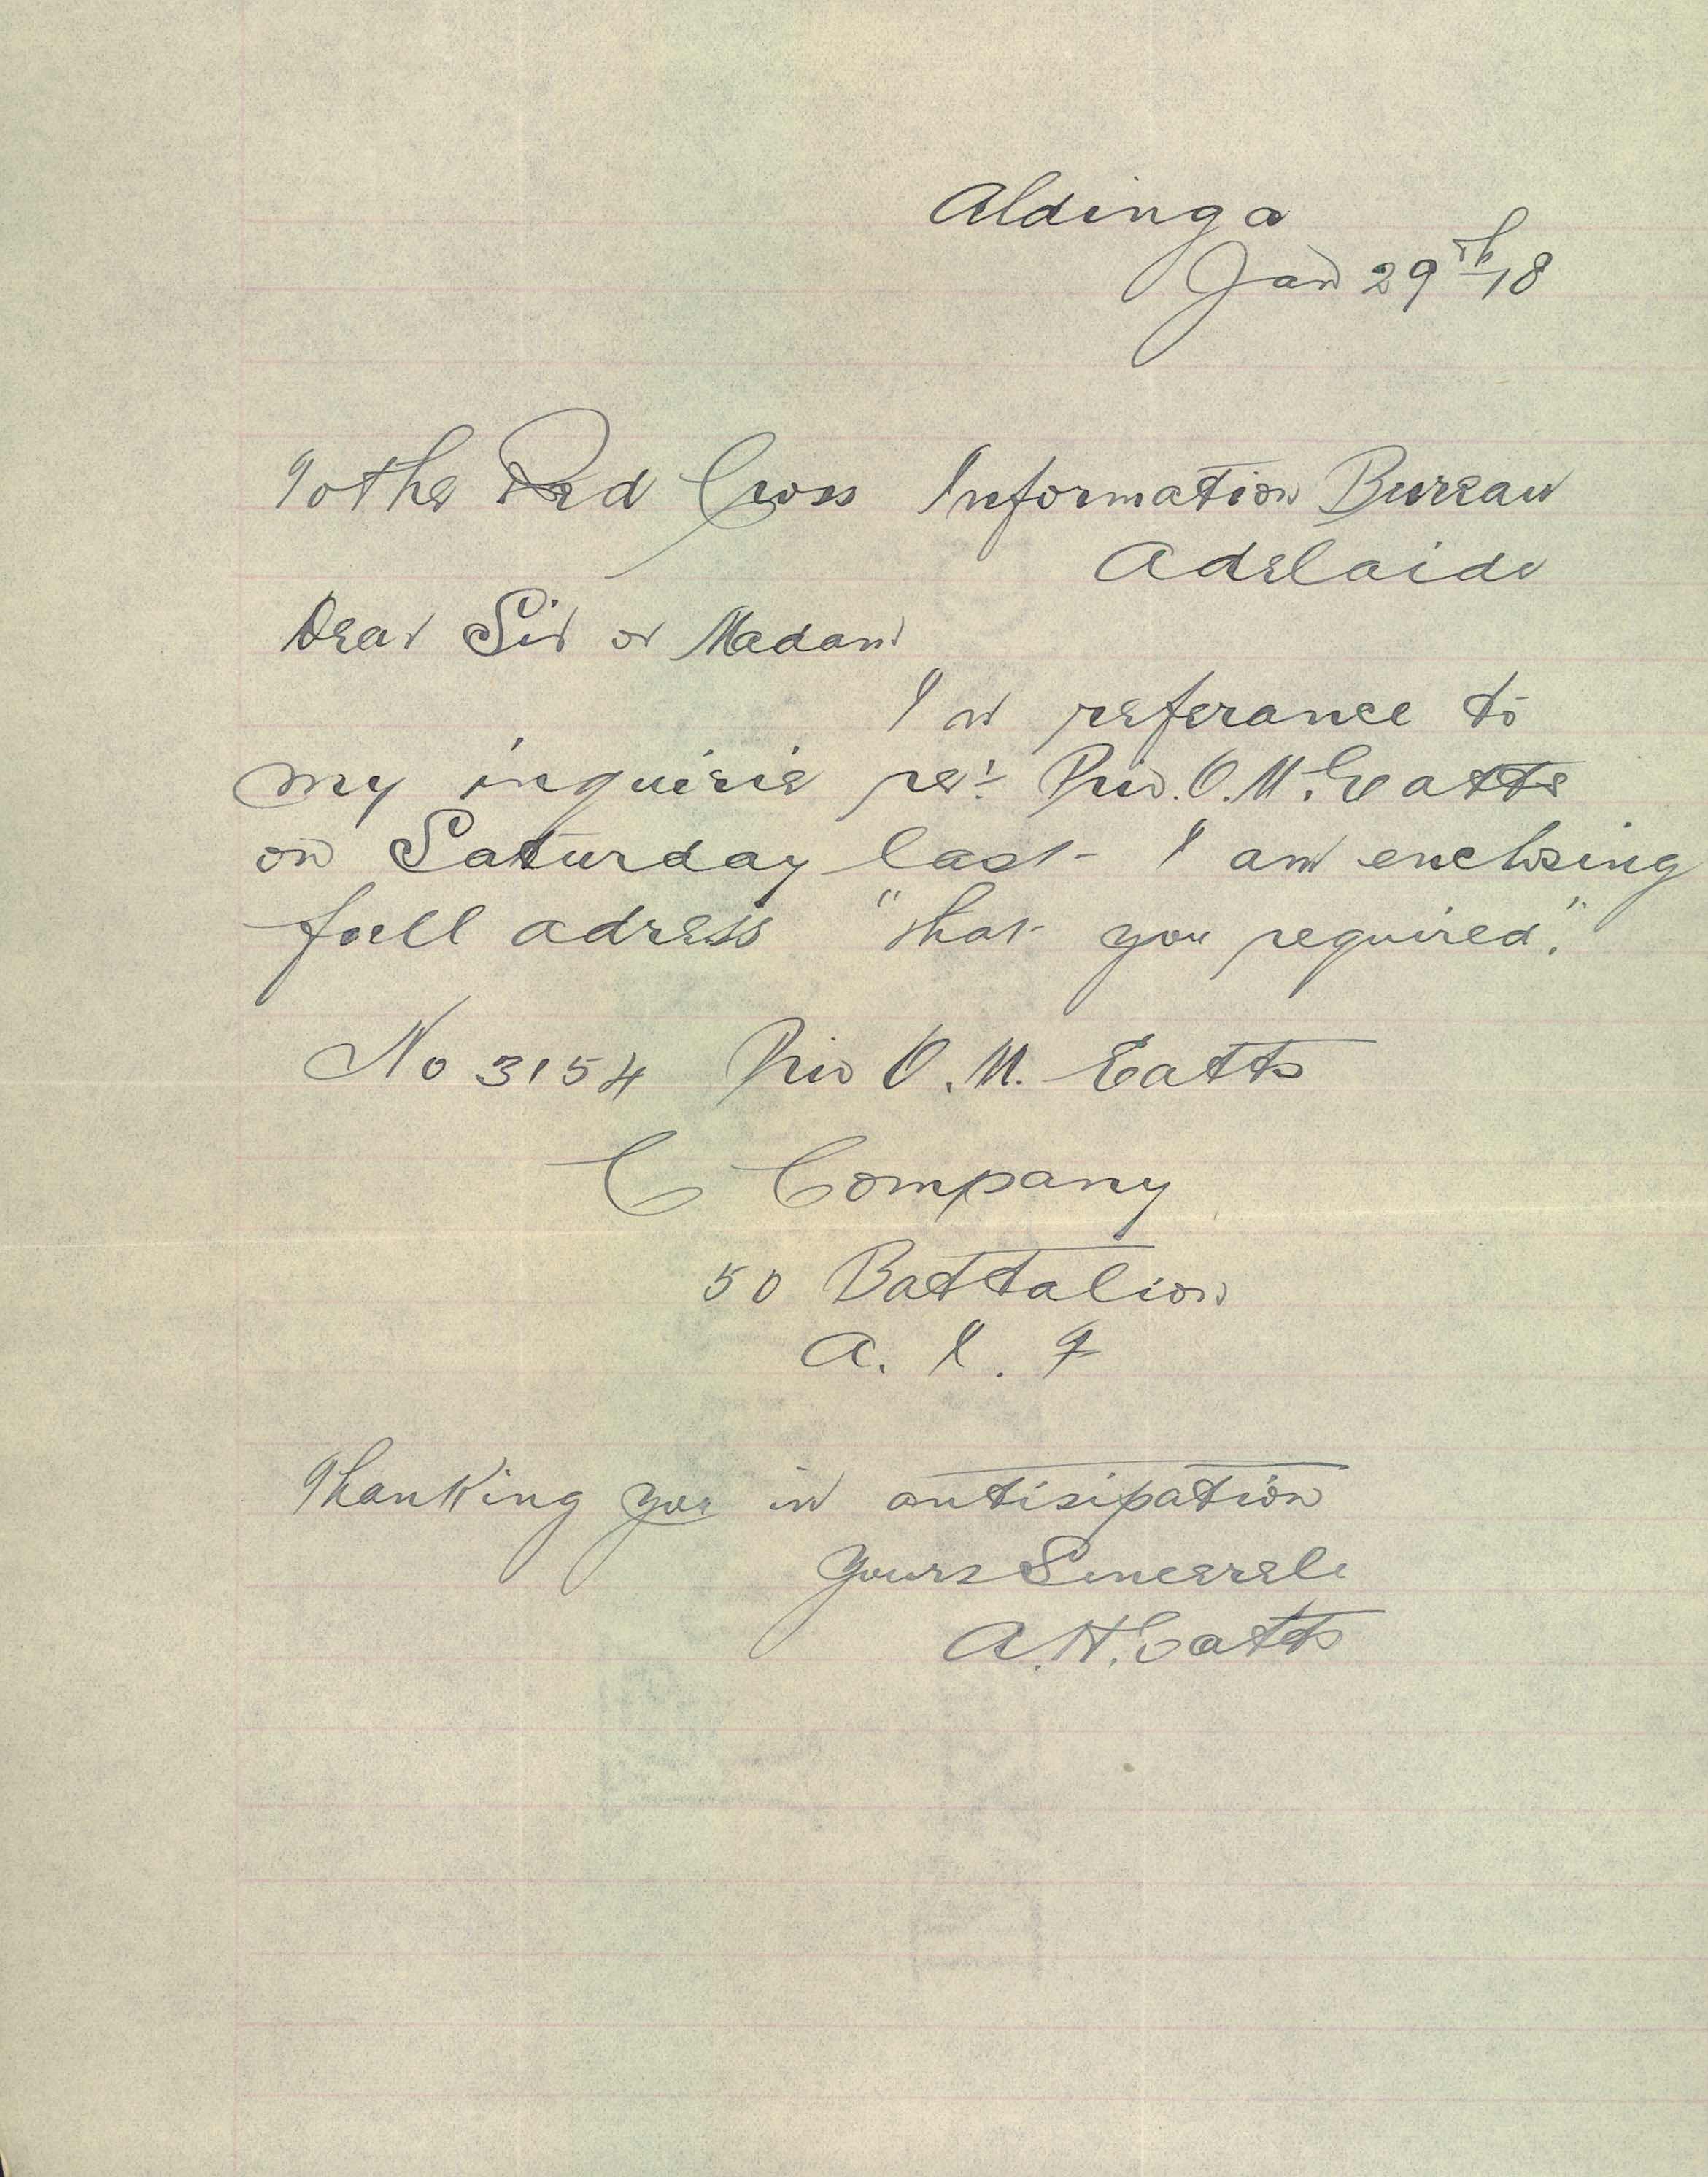 Aldinga
Jan 29th 18
To the Red Cross Information Bureau
Adelaide
Dear Sir or Madam
In referance to
my inquirie re: Priv. O. M. Eatts
on Saturday last I am enclosing
full adress "that you required."
No 3154 Priv O. M. Eatts
C Company
50 Battalion
A. I. F
Thanking you in antisipation
Yours Sincerele
A. H. Eatts